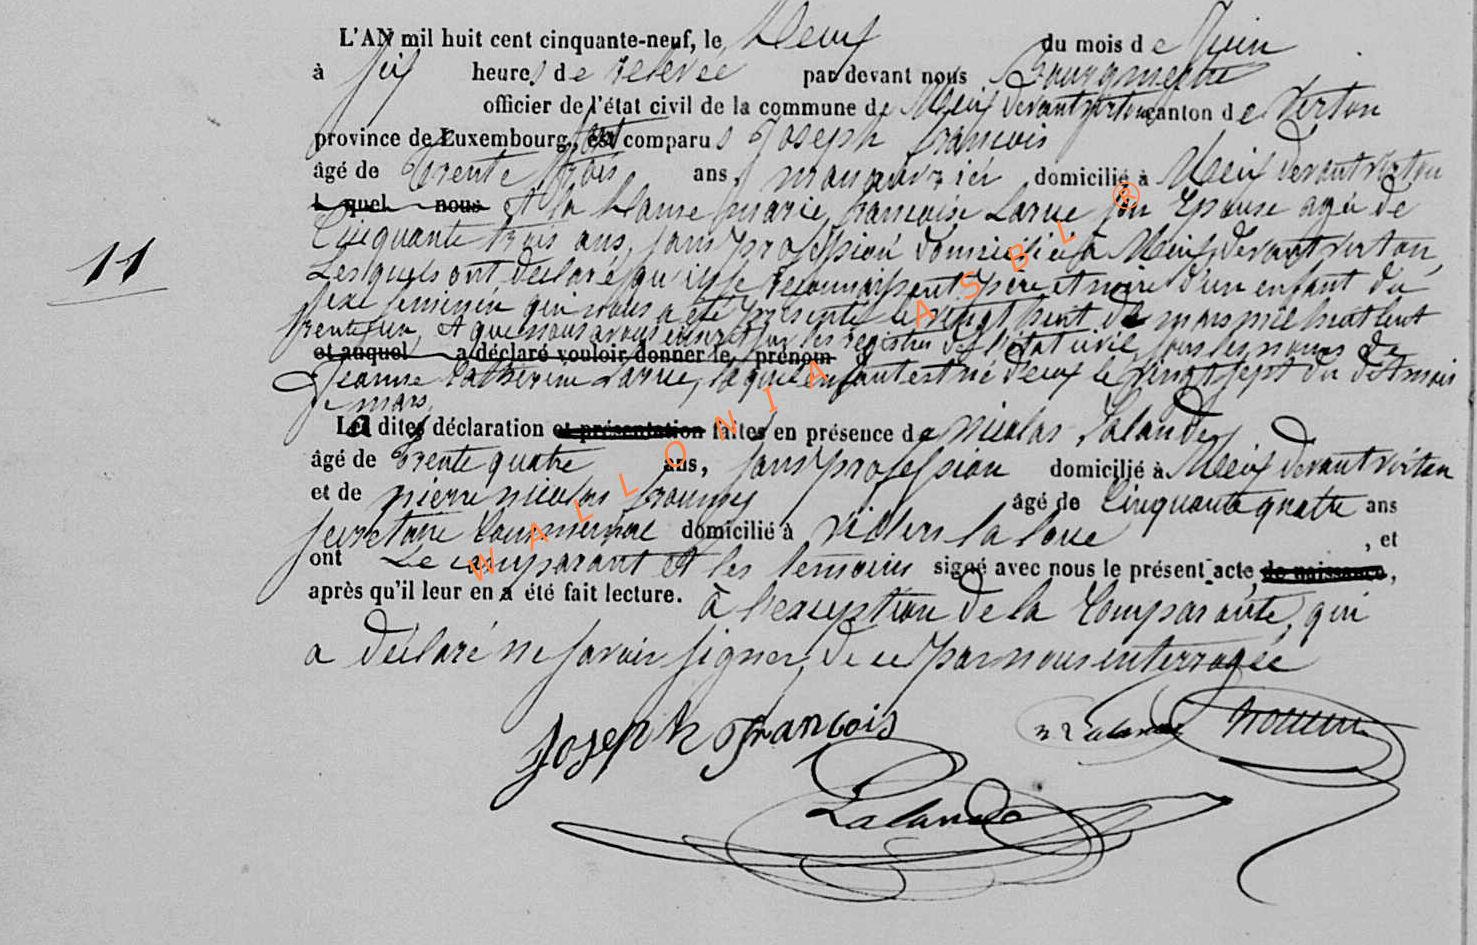 L'AN mil huit cent cinquante-neuf, le Deux du mois de Juin
à six heures de relevée par devant nous Bourgmestre
officier de l'état civil de la commune de Meix devant virton canton de Virton
province de Luxembourg, sont comparus Joseph François
âgé de Trente trois ans, manouvrier domicilié à Meix devant virton
l quel nous et la Dame marie françoise Larue son Epouse agée de
Cinquante trois ans, sans profession domiciliée à Meix devant virton,
Lesquels ont déclaré qu'ils se reconnaissent père et mère d'un enfant du
sexe féminin qui nous a été présenté le vingt huit de mars mil huit cent
trente un, et que nous avons inscrit sur les registres de l'état civil sous les noms de
et auquel a déclaré vouloir donner le prénom
Jeanne Catherine Larue, lequel enfant est né d'eux le vingt sept du dit mois
de mars,
La dite déclaration et présentation faite en présence de Nicolas Lalande
âgé de Trente quatre ans, sans profession domicilié à Meix devant virton
et de pierre nicolas âgé de Cinquante quatre ans
secretaire Communal domicilié à villers la loue , et
ont Le comparant et les temoins signé avec nous le présent acte de naissance,
après qu'il leur en a été fait lecture. à l'exception de la Comparante, qui
a déclaré ne savoir signer, de ce par nous interrogée
11
Joseph François
n Lalande
Lalande
WALLONIA ASBL ®